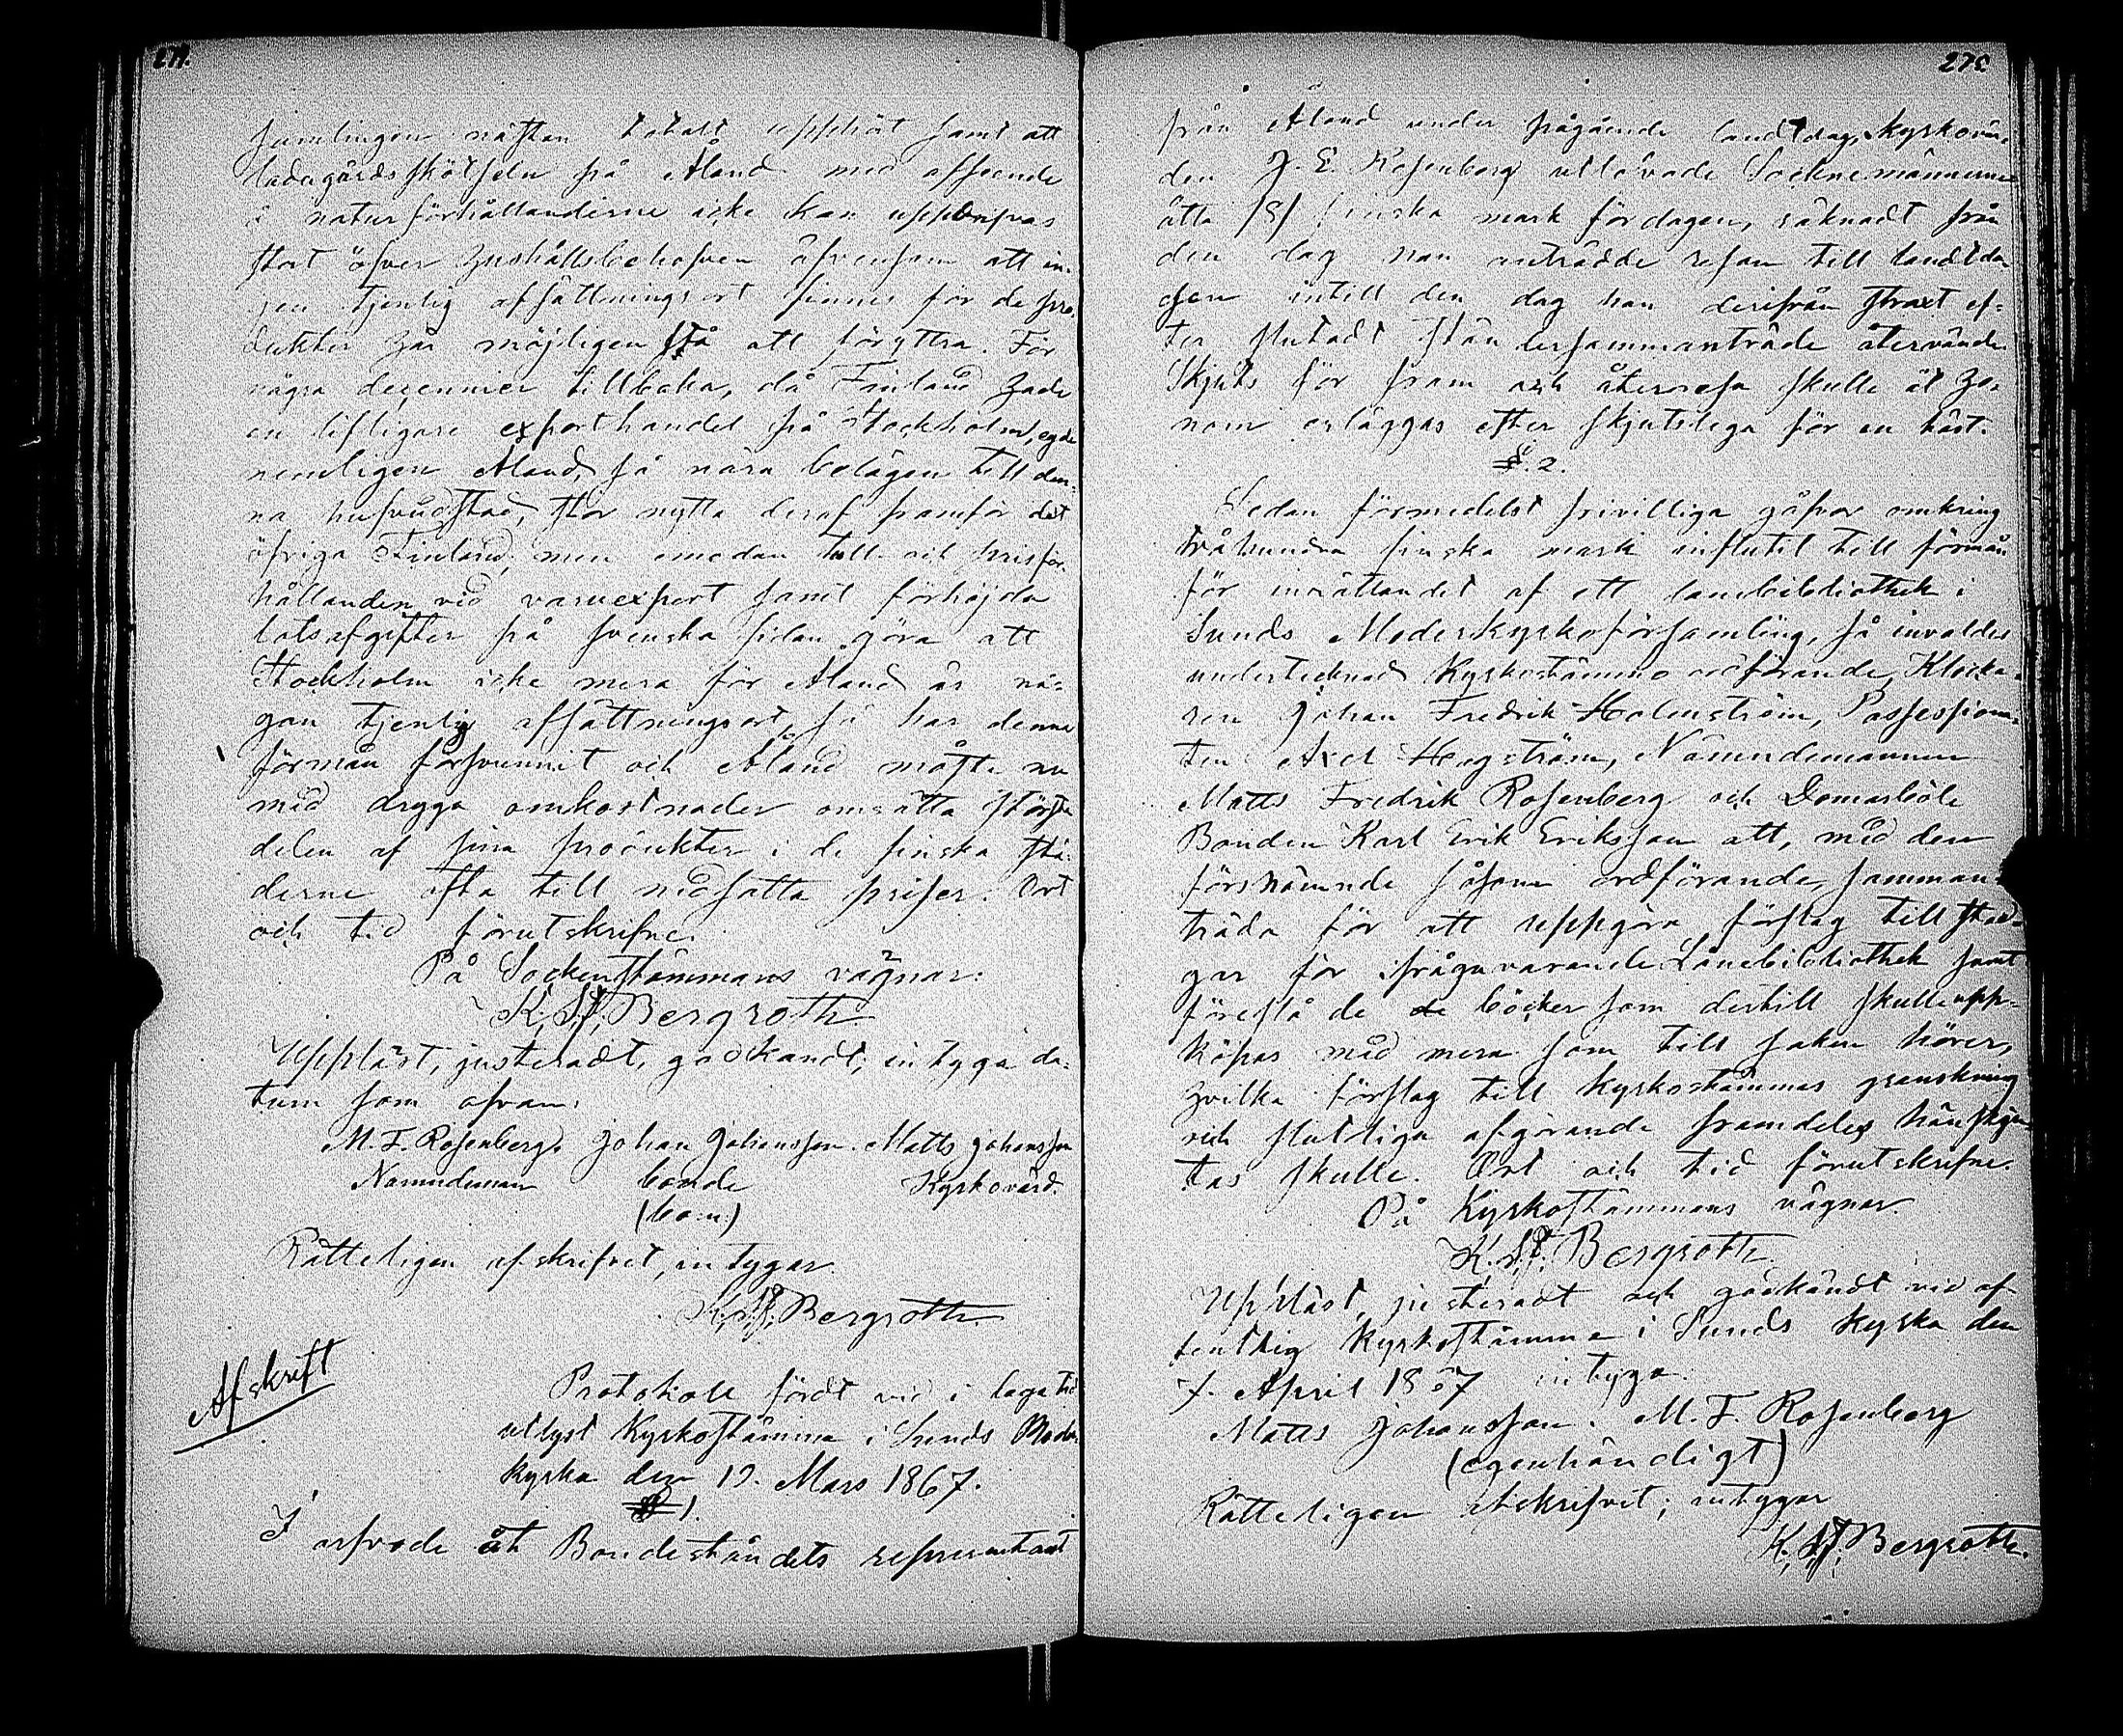 271.
samlingen nästan totalt upphört samt att
ladugårdsskötseln på Åland med afseende
å naturförhållanderne icke kan uppdrifvas
stort öfver hushållsbehofven äfvensom att in-
gen tjenlig afsättningsort finnes för de pro-
dukter här möjligen stå att föryttra. För
några decennier tillbaka, då Finland hade
en lifligare exporthandel på Stockholm, egde
nemligen Åland, så nära belägen till den-
na hufvudstad, stor nytta deraf framför det
öfriga Finland; men emedan tull och prisför-
hållanden vid varuexport samt förhöjda
lotsafgifter på svenska sidan göra att
Stockholm icke mera för Åland är nå-
gon tjenlig afsättningsort, så har denna
förmån försvunnit och Åland måste nu
med dryga omkostnader omsätta största
delen af sina produkter i de finska stä-
derne ofta till nedsatta priser. Ort
och tid förutskrifne.
På Sockenstämmans vägnar:
K. St. Bergroth
Uppläst, justeradt, godkändt; intyga da-
tum som ofvan.
M. F. Rosenberg. Johan Johansson. Matts Johansson
Nämndeman bonde Kyrkovärd.
(bom.)
Rätteligen afskrifvet, intygar
K. St. Bergroth.
Afskrift
Protokoll fördt vid i laga tid
utlyst Kyrkostämma i Sunds Moder
kyrka den 19. Mars 1867.
§ 1.
I arfvode åt Bondeståndets representant
275.
från Åland under pågående landtdag, kyrkovär-
den J. E. Rosenberg utlofvade Socknemännerne
åtta /8/ finska mark för dagen, räknadt från
den dag han anträdde resan till landtda-
gen intill den dag han derifrån straxt ef-
ter slutadt ständersammanträde återvände.
Skjuts för fram och återresa skulle åt ho-
nom erläggas efter skjutslega för en häst.
§. 2.
Sedan förmedelst frivilliga gåfvor omkring
tvåhundra finska mark influtit till förmån
för inrättandet af ett lånebibliothek i
Sunds Moderkyrkoförsamling, så invaldes
undertecknad Kyrkostämmo ordförande, Klocka-
ren Johan Fredrik Holmström, Possessiona-
ten Axel Hagström, Nämndemannen
Matts Fredrik Rosenberg och Domarböle
Bonden Karl Erik Eriksson att, med den
förstnämnde såsom ordförande, samman-
träda för att uppgöra förslag till stad-
gar för ifrågavarande Lånebibliothek samt
föreslå de böcker som dertill skulle upp-
köpas med mera som till saken hörer,
hvilka förslag till kyrkostämmas granskning
och slutliga afgörande framdeles hänskju-
tas skulle. Ort och tid förutskrifne.
På Kyrkostämmans vägnar.
K. St. Bergroth
Uppläst, justeradt och godkändt vid of-
fentlig kyrkostämma i Sunds kyrka den
7. April 1867 intyga.
Matts Johansson. M. F. Rosenberg
(egenhändigt)
Rätteligen afskrifvet; intygar
K. St. Bergroth.